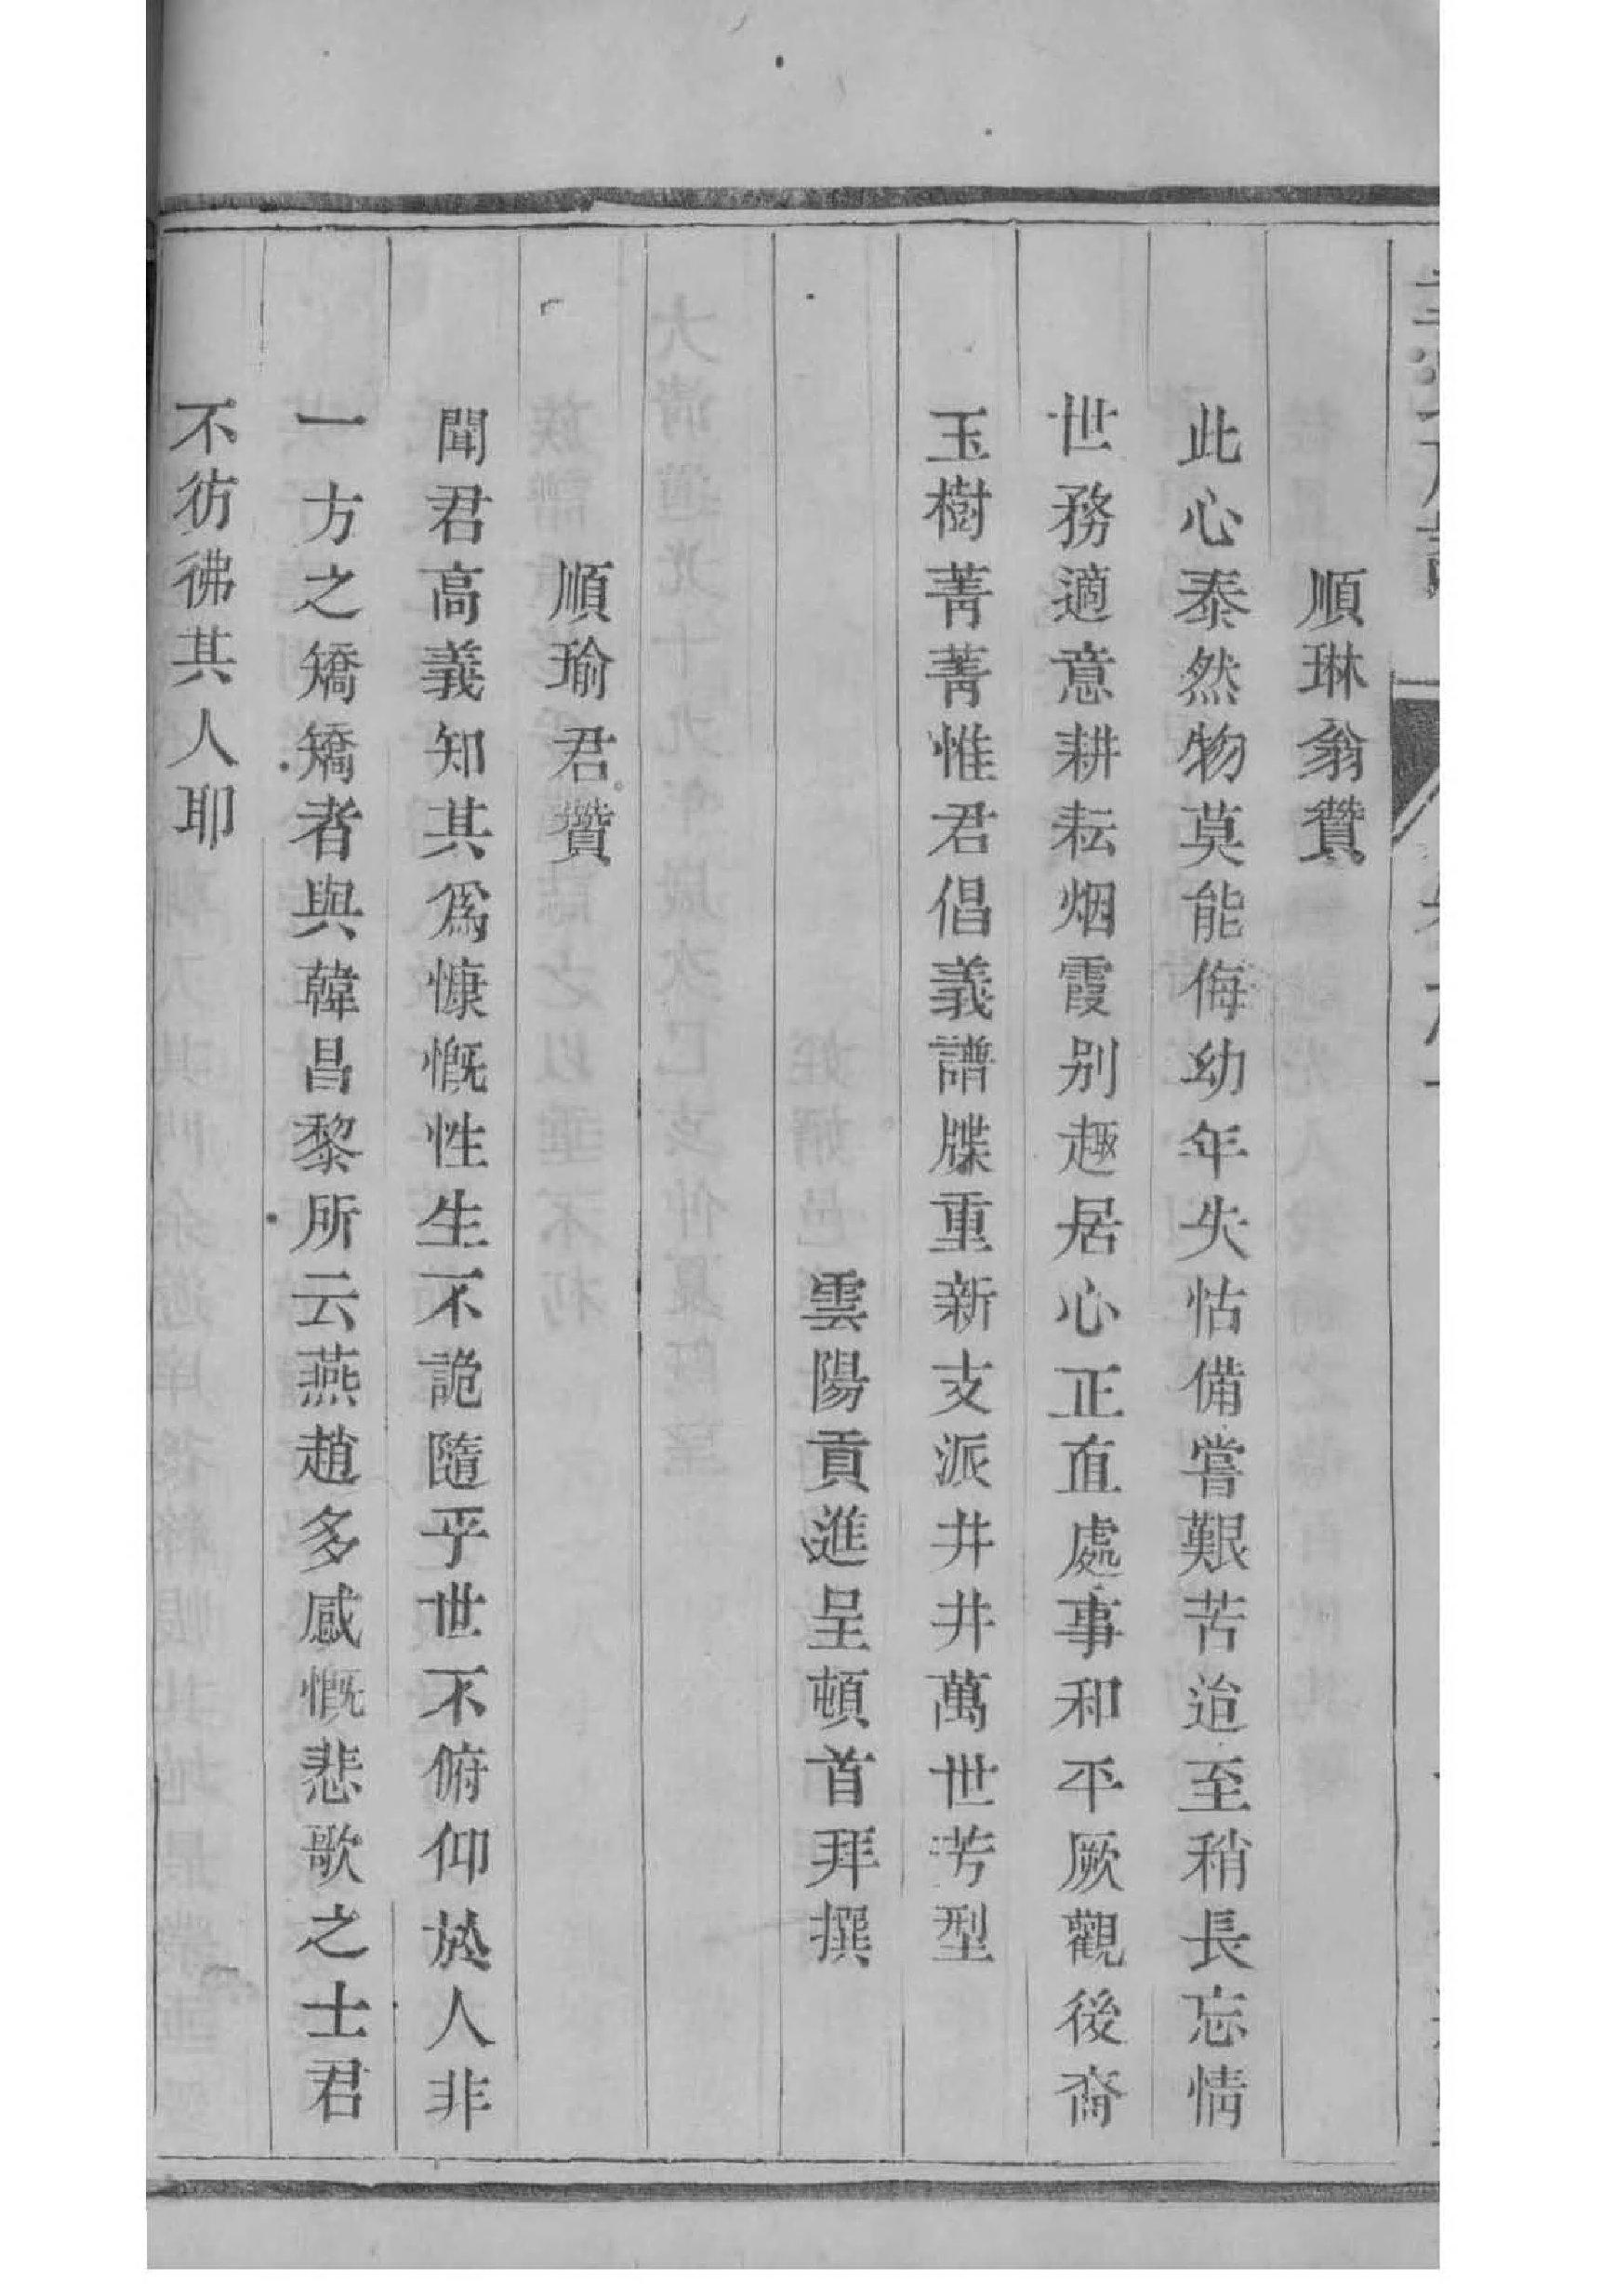 順琳翁贊
此心泰然物莫能侮幼年失怙備嘗艱苦迨至稍長忘情
世務適意耕耘烟霞别趣居心正直處事和平厥觀後裔
玉樹菁菁惟君倡義譜牒重新支派井井萬世芳型
雲陽貢進呈頓首拜撰
順瑜君贊
聞君高義知其爲慷慨性生不詭隨乎世不俯仰於人非
一方之矯矯者與韓昌黎所云燕趙多感慨悲歌之士君
不彷彿其人耶